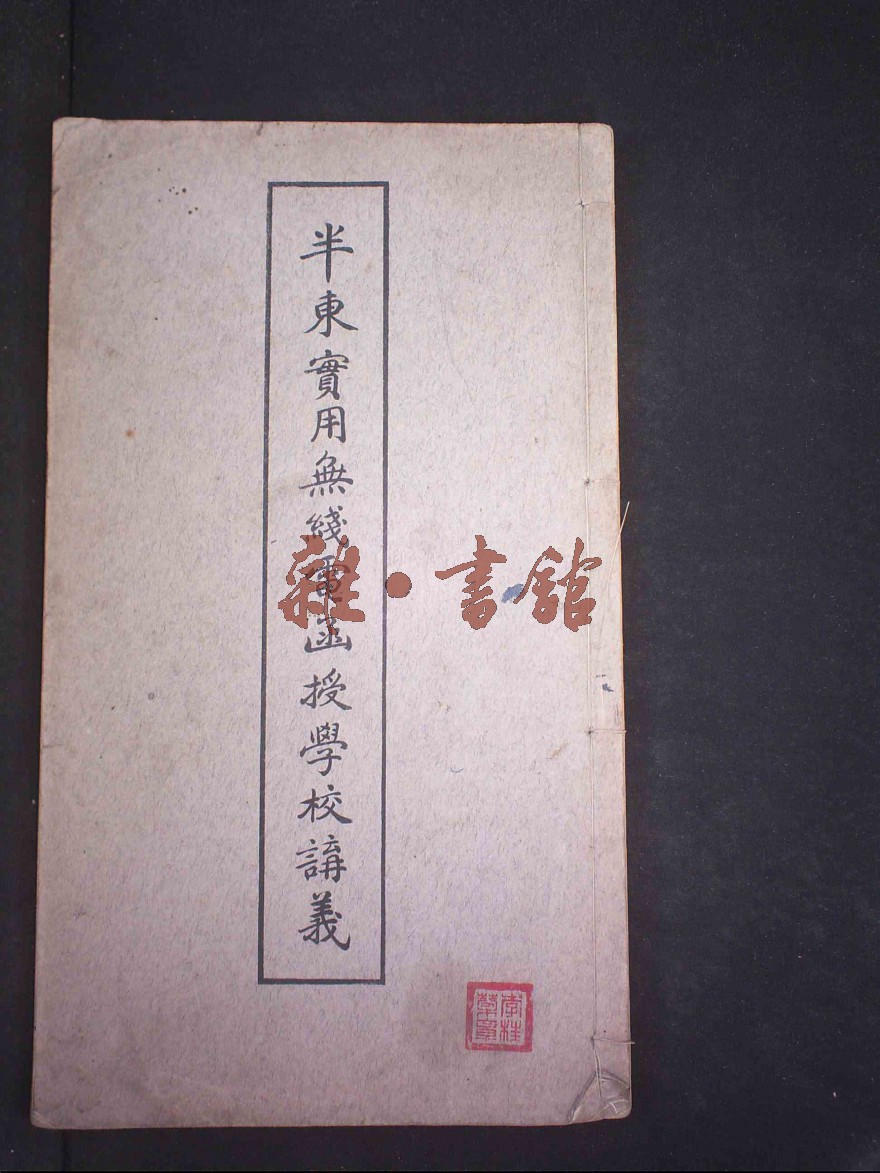 半東實用無綫電函授學校講義
雜·書館
李桂榮印